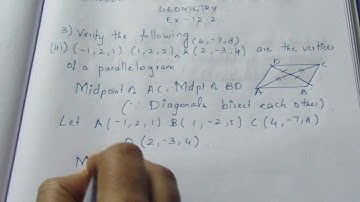 GEOMETRY
Ex-12.2
3) Verify the following
(4,-7,8)
(iii) (-1,2,1) (1,2,5), & (2,-3,4) are the vertices
of a parallelogram.
D C
A B
Midpoint of AC = Mdpt of BD
(∵ Diagonals bisect each other)
Let A(-1,2,1) B(1,-2,5) C(4,-7,8)
D(2,-3,4).
M